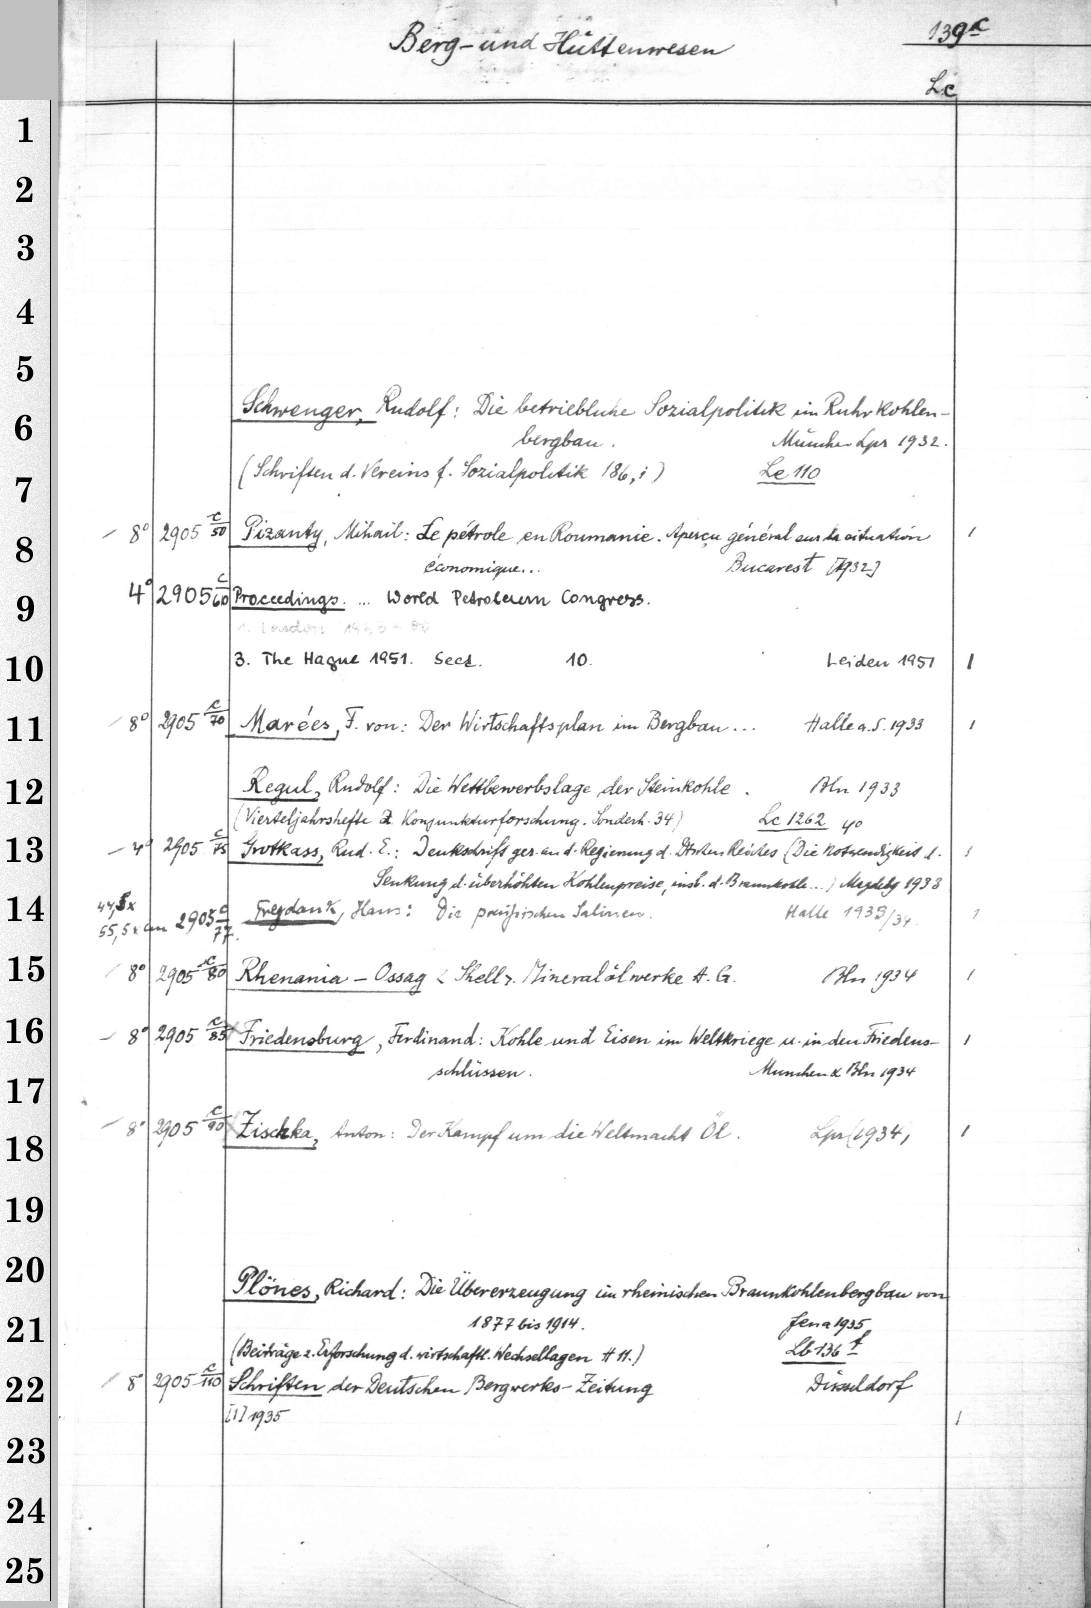 Berg- und Hüttenwesen
139c
Lc
1
2
3
4
5
6
7
8
9
10
11
12
13
14
15
16
17
18
19
20
21
22
23
24
25
Schwenger, Rudolf: Die betriebliche Sozialpolitik im Ruhrkohlen-
bergbau. München Lpz 1932.
(Schriften d. Vereins f. Sozialpolitik 186,1) Le 110
8° 2905 c/50 Pizanty, Mihail: Le pétrole en Roumanie. Aperçu général sur la situation
économique... Bucarest [1932]
4° 2905 c/60 Proceedings. ... World Petroleum Congress.
1. London
3. The Hague 1951. Sect. 10. Leiden 1951
8° 2905 c/70 Marées, F. von: Der Wirtschaftsplan im Bergbau ... Halle a. S. 1933
Regul, Rudolf: Die Wettbewerbslage der Steinkohle. Bln 1933
(Vierteljahrshefte z. Konjunkturforschung. Sonderh. 34) Lc 1262 40
4° 2905 c/75 Grotkass, Rud. E.: Denkschrift ger. an d. Regierung d. Dtschen Reiches (Die Notwendigkeit d.
Senkung d. überhöhten Kohlenpreise, insb. d. Braunkohle...) Magdebg 1933
44,5x
55,5 x cm 2905 c/77. Freydank, Hans: Die preußischen Salinen. Halle 1933/34.
8° 2905 c/80 Rhenania - Ossag <Shell>. Mineralölwerke A. G. Bln 1934
8° 2905 c/85 Friedensburg, Ferdinand: Kohle und Eisen im Weltkriege u. in den Friedens-
schlüssen. München & Bln 1934
8° 2905 c/90 Zischka, Anton: Der Kampf um die Weltmacht Öl. Lpz (1934)
Plönes, Richard: Die Übererzeugung im rheinischen Braunkohlenbergbau von
1877 bis 1914. Jena 1935
(Beiträge z. Erforschung d. wirtschaftl. Wechsellagen H 11.) Lb 136 f
8° 2905 c/110 Schriften der Deutschen Bergwerks-Zeitung Düsseldorf
[1] 1935